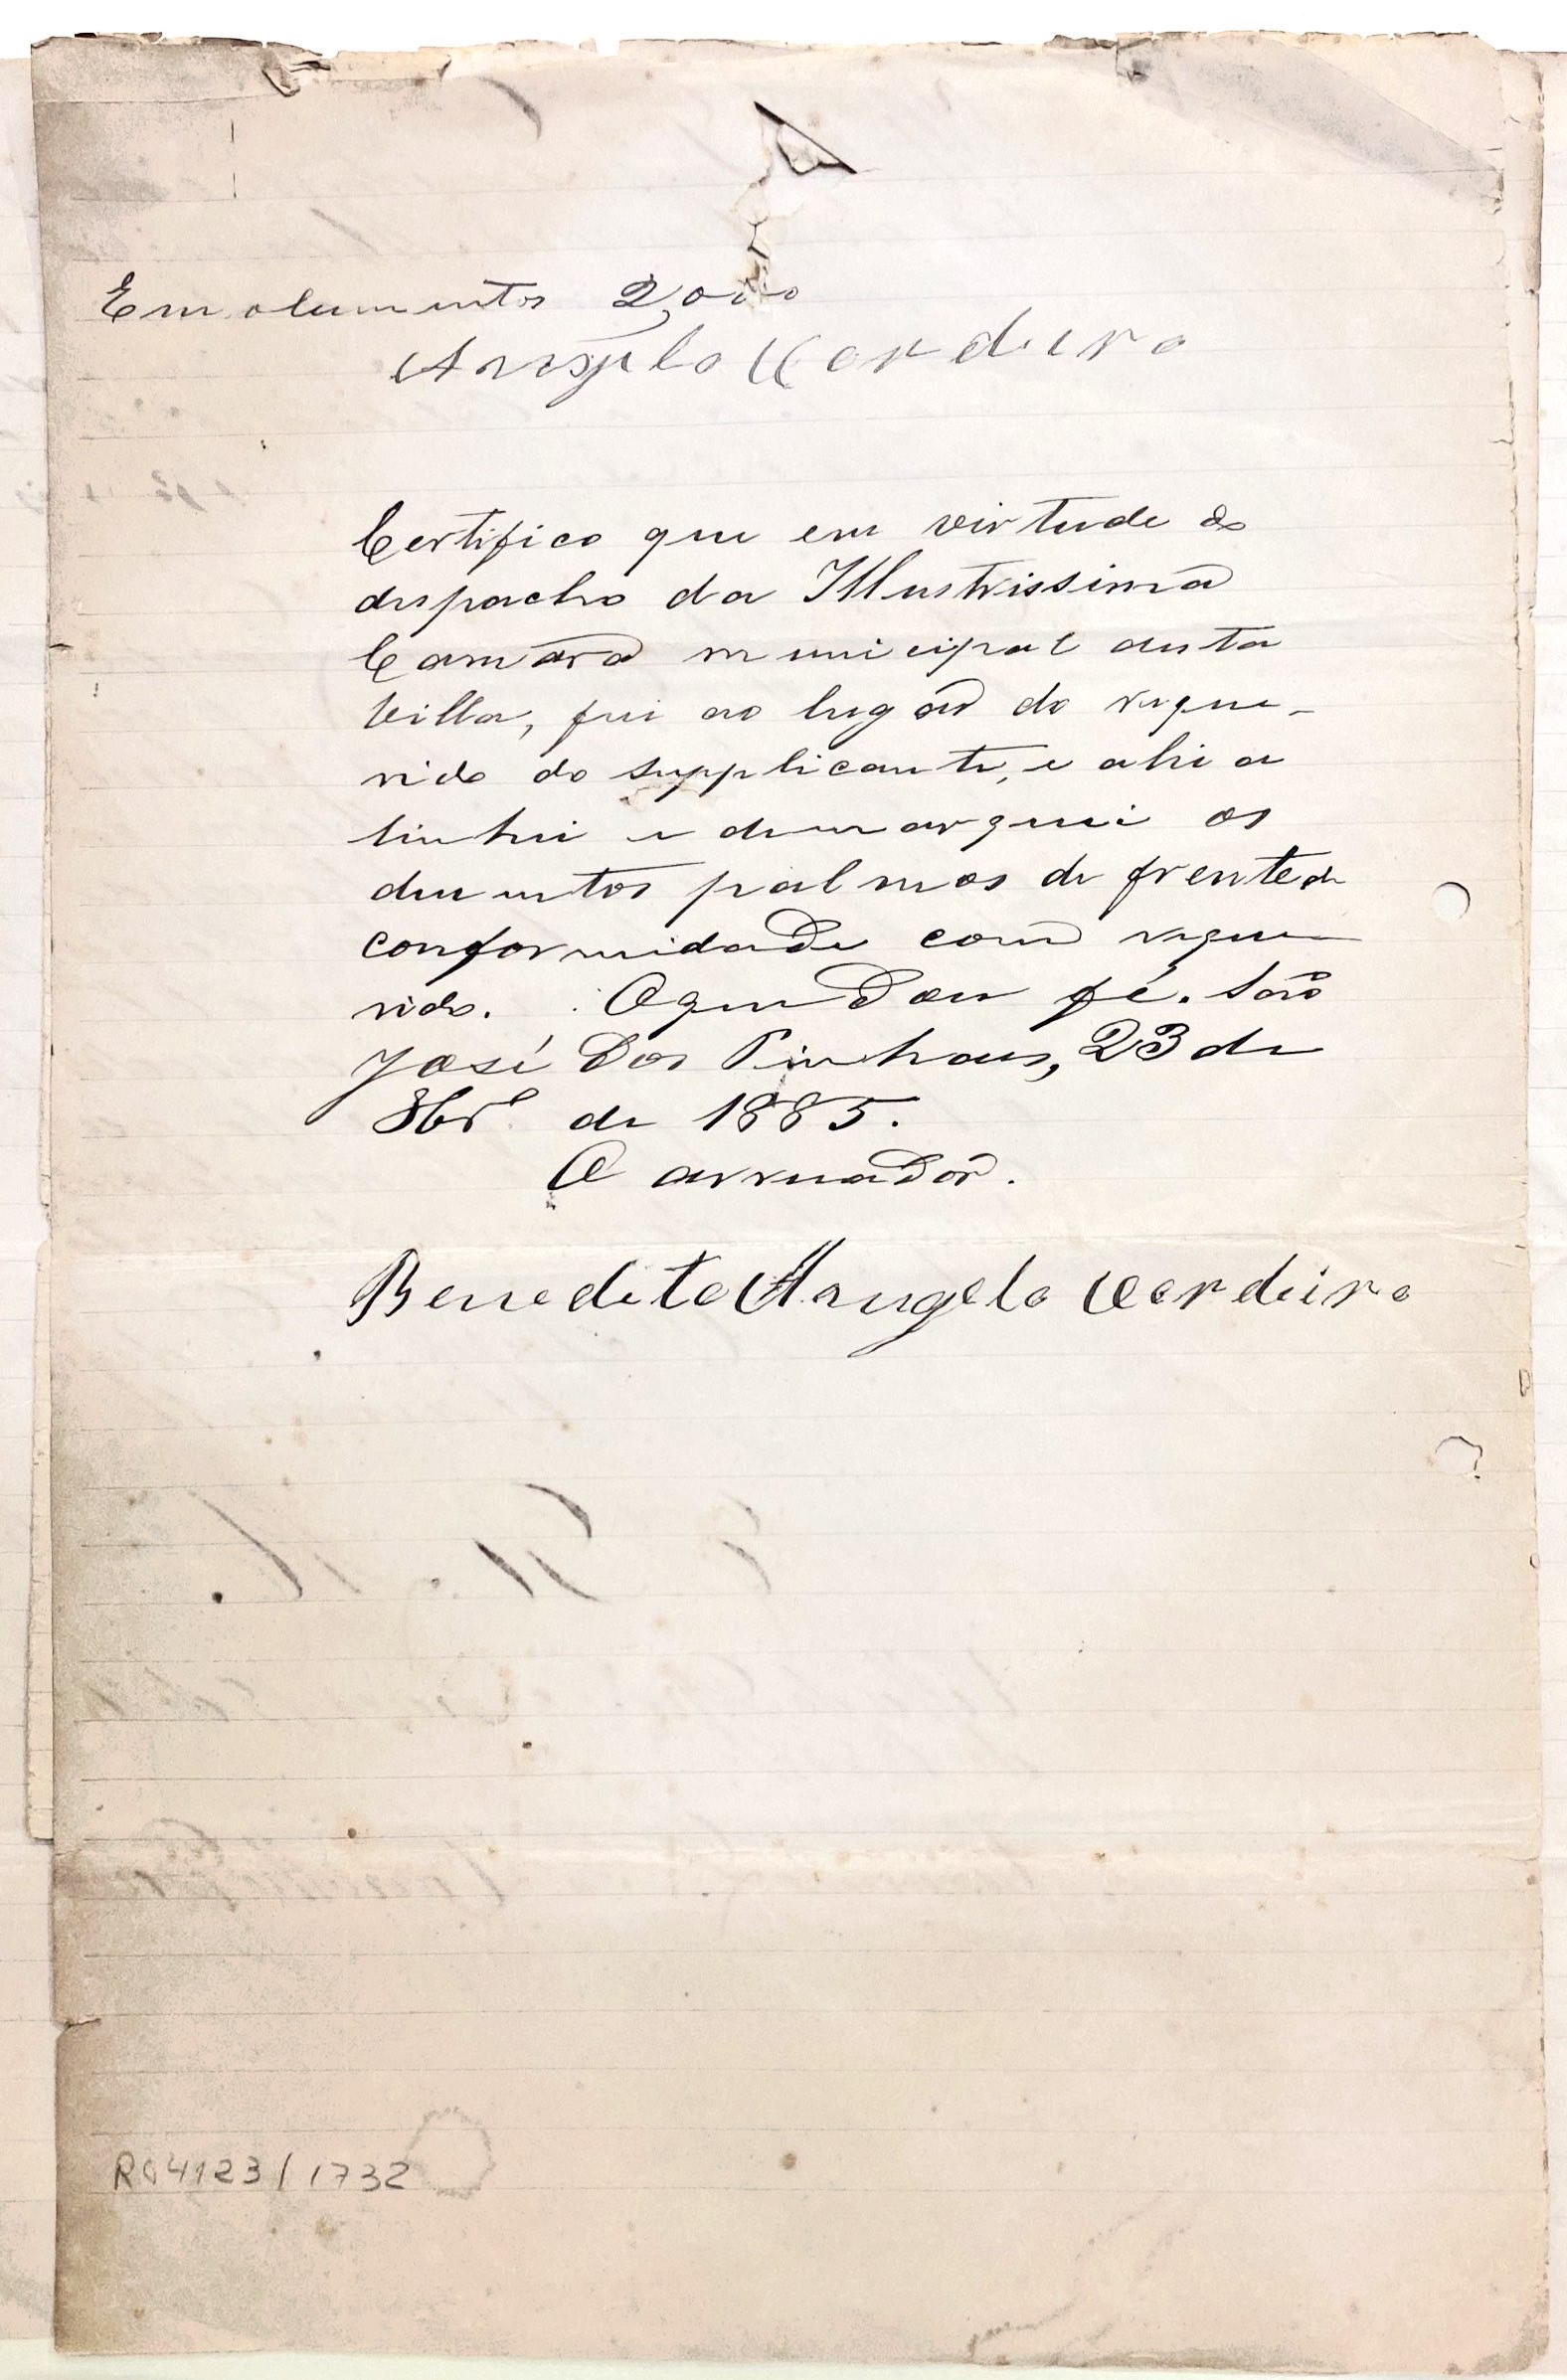 Emolumentos 2,000
Angelo Cordeiro
Certifico que em virtude do
despacho da Illustrissima
Camara municipal desta
Villa, fui ao lugar do reque-
rido do supplicante, e ahi a
linhei e demarquei os
duzentos palmos de frente de
conformidade com reque
rido. O que dou fé. São
José dos Pinhaes, 23 de
8brº de 1885.
O arruador.
Benedito Angelo Cordeiro
R04123/1732